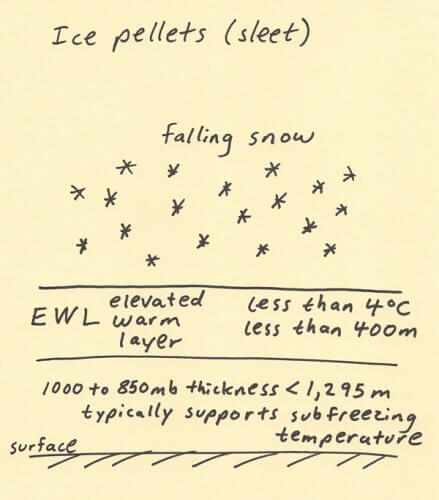 Ice pellets (sleet)
falling snow
EWL elevated warm layer
less than 4°C
less than 400m
1000 to 850mb thickness < 1,295 m
typically supports subfreezing
temperature
surface